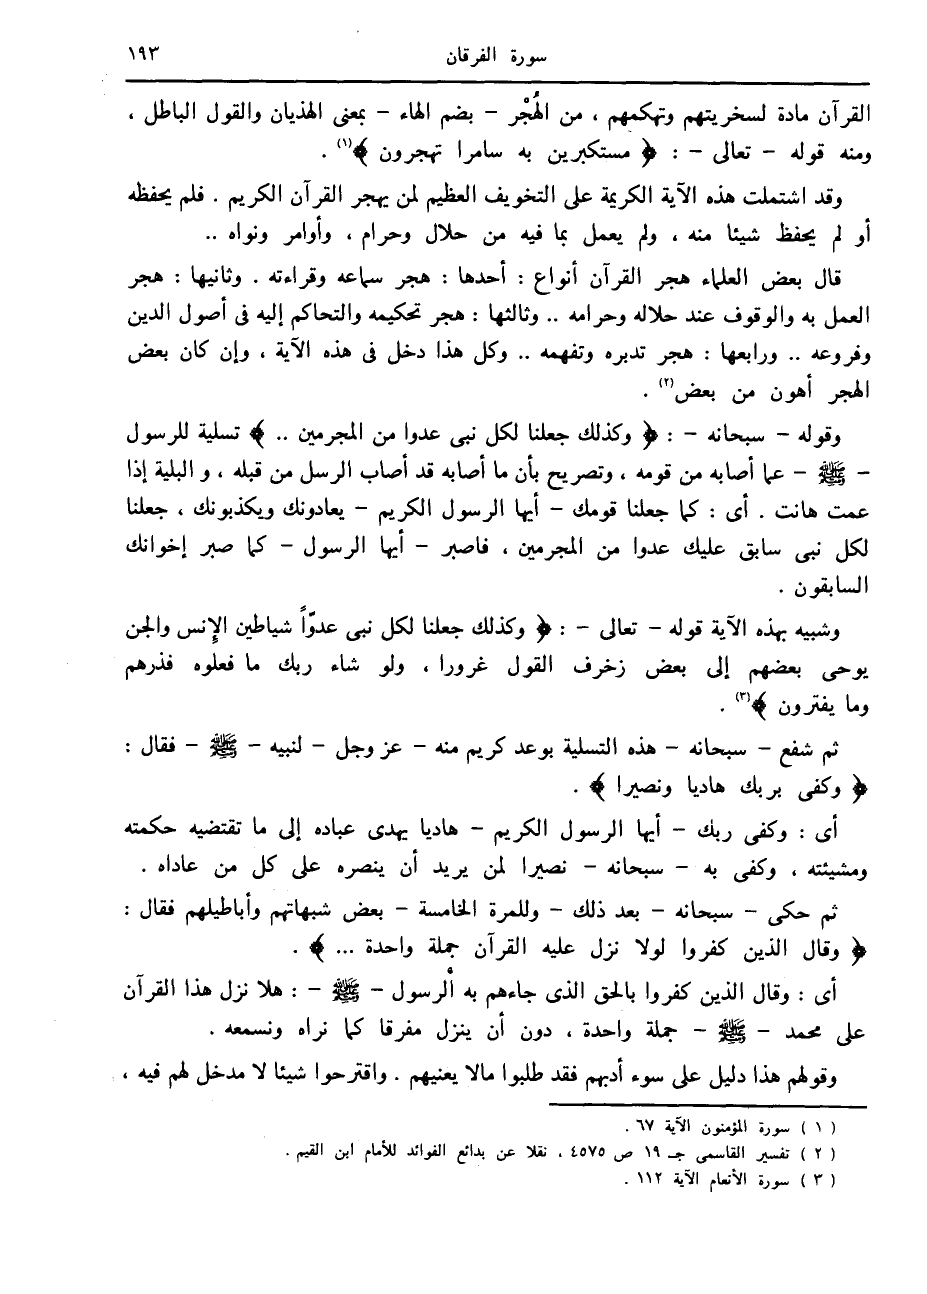 سورة الفرقان ١٩٣
القرآن مادة لسخريتهم وتهكمهم ، من الهُجْر – بضم الهاء – بمعنى الهذيان والقول الباطل ،
ومنه قوله – تعالى – : ﴿ مستكبرين به سامرا تهجرون ﴾(١) .
وقد اشتملت هذه الآية الكريمة على التخويف العظيم لمن يهجر القرآن الكريم . فلم يحفظه
أو لم يحفظ شيئا منه ، ولم يعمل بما فيه من حلال وحرام ، وأوامر ونواه ..
قال بعض العلماء هجر القرآن أنواع : أحدها : هجر سماعه وقراءته . وثانيها : هجر
العمل به والوقوف عند حلاله وحرامه .. وثالثها : هجر تحكيمه والتحاكم إليه فى أصول الدين
وفروعه .. ورابعها : هجر تدبره وتفهمه .. وكل هذا دخل فى هذه الآية ، وإن كان بعض
الهجر أهون من بعض(٢) .
وقوله – سبحانه – : ﴿ وكذلك جعلنا لكل نبى عدوا من المجرمين .. ﴾ تسلية للرسول
– ﷺ – عما أصابه من قومه ، وتصريح بأن ما أصابه قد أصاب الرسل من قبله ، و البلية إذا
عمت هانت . أى : كما جعلنا قومك – أيها الرسول الكريم – يعادونك ويكذبونك ، جعلنا
لكل نبى سابق عليك عدوا من المجرمين ، فاصبر – أيها الرسول – كما صبر إخوانك
السابقون .
وشبيه بهذه الآية قوله – تعالى – : ﴿ وكذلك جعلنا لكل نبى عدوّاً شياطين الإنس والجن
يوحى بعضهم إلى بعض زخرف القول غرورا ، ولو شاء ربك ما فعلوه فذرهم
وما يفترون ﴾(٣) .
ثم شفع – سبحانه – هذه التسلية بوعد كريم منه – عز وجل – لنبيه – ﷺ – فقال :
﴿ وكفى بربك هاديا ونصيرا ﴾ .
أى : وكفى ربك – أيها الرسول الكريم – هاديا يهدى عباده إلى ما تقتضيه حكمته
ومشيئته ، وكفى به – سبحانه – نصيرا لمن يريد أن ينصره على كل من عاداه .
ثم حكى – سبحانه – بعد ذلك – وللمرة الخامسة – بعض شبهاتهم وأباطيلهم فقال :
﴿ وقال الذين كفروا لولا نزل عليه القرآن جملة واحدة ... ﴾ .
أى : وقال الذين كفروا بالحق الذى جاءهم به الرسول – ﷺ – : هلا نزل هذا القرآن
على محمد – ﷺ – جملة واحدة ، دون أن ينزل مفرقا كما نراه ونسمعه .
وقولهم هذا دليل على سوء أدبهم فقد طلبوا مالا يعنيهم . واقترحوا شيئا لا مدخل لهم فيه ،
( ١ ) سورة المؤمنون الآية ٦٧ .
( ٢ ) تفسير القاسمى جـ ١٩ ص ٤٥٧٥ ، نقلا عن بدائع الفوائد للأمام ابن القيم .
( ٣ ) سورة الأنعام الآية ١١٢ .